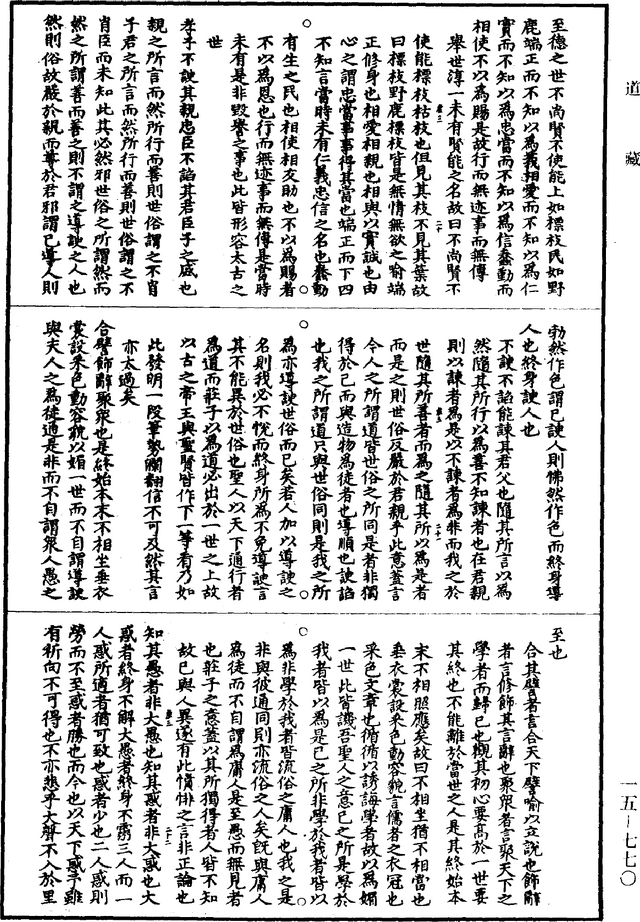 道藏
至德之世不尚賢不使能上如標枝民如野
鹿端正而不知以為義相愛而不知以為仁
實而不知以為忠當而不知以為信蠢動而
相使不以為賜是故行而無迹事而無傳
舉世淳一未有賢能之名故曰不尚賢不
使能標枝枯枝也但見其枝不見其葉故
曰標枝野鹿標枝皆是無情無欲之喻端
正修身也相愛相親也相與以實誠也由
心之謂忠當事事得其當也端正而下四
不知言當時未有仁義忠信之名也蠢動
有生之民也相使相友助也不以為賜者
不以為恩也行而無迹事而無傳是當時
未有是非毀譽之事也此皆形容太古之
世
孝子不諛其親忠臣不諂其君臣子之盛也
親之所言而然所行而善則世俗謂之不肖
子君之所言而然所行而善則世俗謂之不
肖臣而未知此其必然邪世俗之所謂然而
然之所謂善而善之則不謂之導諛之人也
然則俗故嚴於親而尊於君邪謂己導人則
勃然作色謂己諛人則怫然作色而終身導
人也終身諛人也
不諛不諂能諫其君父也隨其所言以為
然隨其所行以為善不知諫者也在君親
則以諫者為是以不諫者為非而我之於
世隨其所善者而為之隨其所以為是者
而是之則世俗反嚴於君親乎此意蓋言
今人之所謂道皆世俗之所同是者非獨
得於己而與造物為徒者也導順也諛諂
也我之所謂道只與世俗同則是我之所
為亦導諛世俗而已矣若人加以導諛之
名則我必不悅而終身所為不免導諛言
其不能異於世俗也聖人以天下通行者
為道而莊子以為道必出於一世之上故
以古之帝王與聖賢皆作下一等看乃如
此發明一段筆勢瀾翻信不可及然其言
亦太過矣
合譬飾辭聚眾也是終始本末不相坐垂衣
裳設采色動容貌以媚一世而不自謂導諛
與夫人之為徒通是非而不自謂眾人愚之
至也
合其譬者言合天下譬喻以立說也飾辭
者言修飾其言辭也聚眾者言聚天下之
學者而歸己也觀其初心要高於一世要
其終也不能離於當世之人是其終始本
末不相照應矣故曰不相坐猶不相當也
垂衣裳設采色動容貌言儒者之衣冠也
采色文章也循循以誘誨學者故以為媚
一世此皆譏吾聖人之意己之所是學於
我者皆以為是己之所非學於我者皆以
為非學於我者皆流俗之庸人也我之是
非與彼通同則亦流俗之人矣既與庸人
為徒而不自謂為庸人是至愚而無見者
也莊子之意蓋以其所獨得者人皆不知
故己與人異遂有此憤悱之言非正論也
知其愚者非大愚也知其惑者非大惑也大
惑者終身不解大愚者終身不靈三人而一
人惑所適者猶可致也惑者少也二人惑則
勞而不至惑者勝也而今也以天下惑予雖
有祈向不可得也不亦悲乎大聲不入於里
一五-七七〇